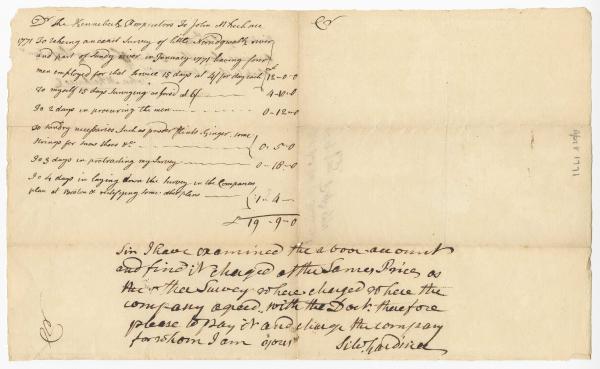 Dr The Kennebeck Proprietors To John McKechnie
1771 To taking an exact Survey of little Norridgwalk river
and part of Sandy river in January 1771 having four
men employed for that Service 15 days at 4/ per day each 12-0-0
To myself 15 days Surveying as fored at 6/ 4-10-0
To 2 days in procuring the men 0-12-0
To sundry necessaries such as powder flints Ginger, some
strings for snow shoes &c 0-5-0
To 3 days in protracting my Survey 0-18-0
To 4 days in laying down the Survey in the Companies
plan at Boston & rectifying some other plans 1-4-
£19-9-0
Sir I have examined the above account
and find it charged at the Same Price as
the other Survey where charged where the
company agreed with the Doct. therefore
please to Pay it and charge the company
for whom I am yours
Silv Gardiner
1771